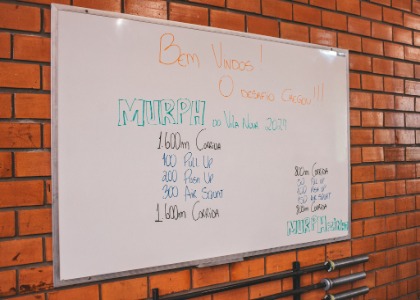 BEM VINDOS!
O DESAFIO CHEGOU!!!
MURPH DO VILA NOVA 2024
1.600m CORRIDA
100 PULL UP
200 PUSH UP
300 AIR SQUAT
1.600m CORRIDA
800m CORRIDA
50 PULL UP
100 PUSH UP
150 AIR SQUAT
800m CORRIDA
MURPH